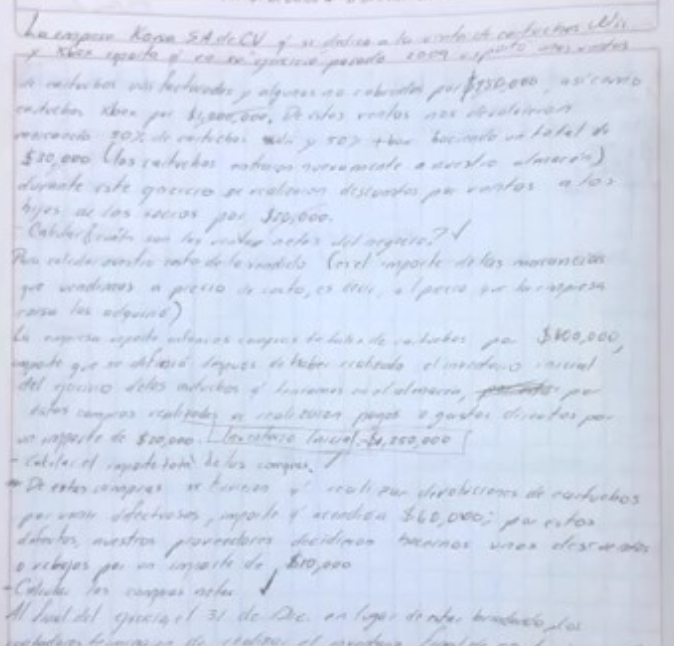 La empresa Korsa SA de CV q' se dedica a la venta de cartuchos Wii
y Xbox reporta q' en su ejercicio pasado 2009 reporto unas ventas
de cartuchos wii facturados y algunos no cobrados por $950,000, así como
cartuchos Xbox por $1,000,000. De estas ventas nos devolvieron
mercancía 20% de cartuchos wii y 50% xbox haciendo un total de
$30,000 (los cartuchos entraron nuevamente a nuestro almacén)
durante este ejercicio se realizaron descuentos por ventas a los
hijos de los socios por $20,000.
- Calcular cuáles son las ventas netas del negocio? ✓
Para calcular nuestro costo de lo vendido (es el importe de las mercancías
que vendimos a precio de costo, es decir, al precio que la empresa
las adquirió)
La empresa reporta compras de cartuchos por $800,000,
importe que se después de haber realizado el inventario inicial
del ejercicio de los cartuchos q' teníamos en el almacén, por
estas compras realizadas se realizaron pagos o gastos directos por
un importe de $20,000. Inventario Inicial $1,250,000
- Calcular el importe total de las compras.
De estas compras se tuvieron q' realizar devoluciones de cartuchos
por venir defectuosos, importe q' ascendía $60,000; por estos
defectos, nuestros proveedores decidieron hacernos unos descuentos
o rebajas por un importe de $10,000
- Calcular las compras netas ✓
Al final del ejercicio, el 31 de Dic. en lugar de estar brindando, los
de realizar el inventario final